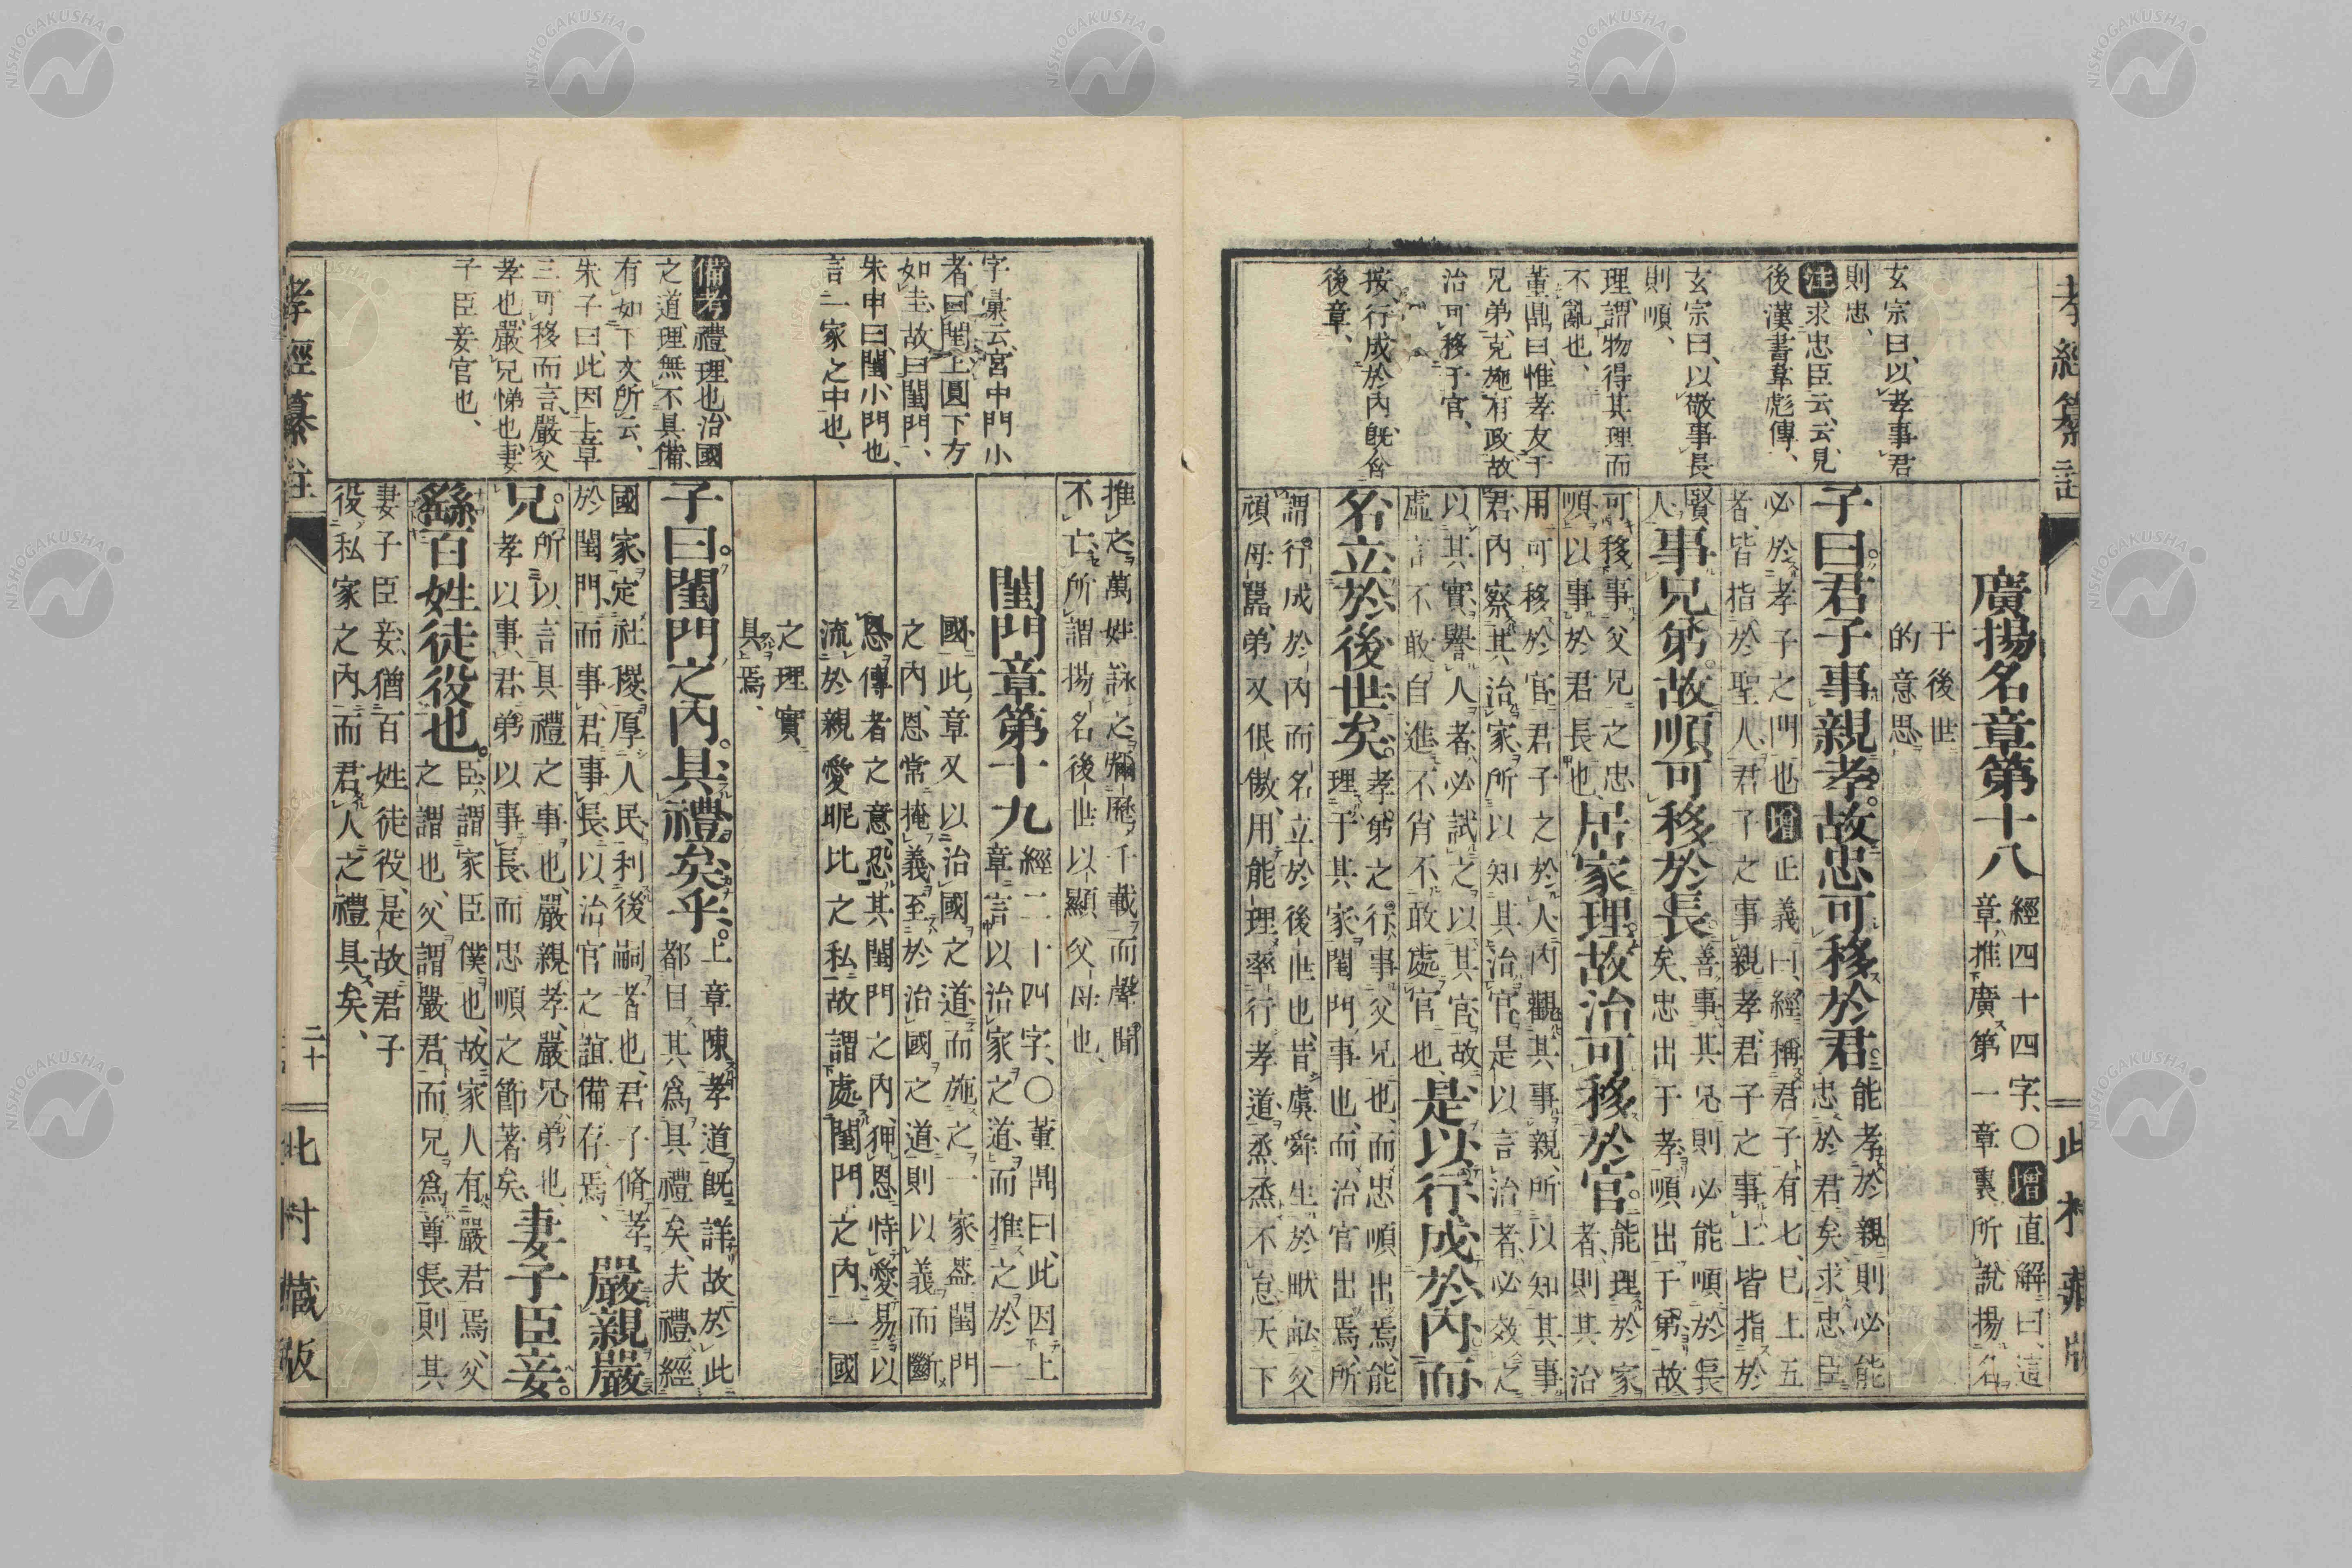 孝經纂註
此村藏版
廣揚名章第十八
經四十四字、〇增直解曰、這
章、推廣第一章裏所說揚名
于後世
的意思
子曰。君子事親孝。故忠可移於君。
能孝於親則必能
忠於君矣、求忠臣
必於孝子之門也增正義曰、經稱君子有七、已上五
者、皆指於聖人、君子之事親孝、君子之事上皆指於
賢
人
事兄弟。故順可移於長。
善事其兄則必能順於長
矣、忠出于孝順出于弟、故
可移事父兄之忠
順以事於君長也、
居家理。故治可移於官。
能理於家
者、則其治
用可移於官、君子之於人內觀其事親、所以知其事
君、內察其治家、所以知其治官、是以言治者、必效之
以其實、譽人者、必試之以其官、故
虛言不敢自進、不肖不敢處官也、
是以行成於內。而
名立於後世矣。
孝弟之行、事父兄也、而忠順出焉、能
理于其家閨門、事也、而治官出焉、所
謂行成於內而名立於後世也、昔虞舜生於畎畝、父
頑母嚚、弟又佷傲、用能理率行孝道、烝烝不怠、天下
玄宗曰、以孝事君
則忠、
注求忠臣云云、見
後漢書韋彪傳、
玄宗曰、以敬事長
則順、
理、謂物得其理而
不亂也、
董鼎曰、惟孝友于
兄弟、克施有政、故
治可移于官、
按、行成於內、既含
後章、
推之、萬姓詠之、彌歷千載、而聲聞
不亡、所謂揚名後世以顯父母也、
閨門章第十九
經二十四字、〇董鼎曰、此因上
章言以治家之道、而推之於一
國、此章又以治國之道、而施之一家、蓋閨門
之內、恩常掩義、至於治國之道、則以義而斷
恩、傳者之意、恐其閨門之內、狎恩恃愛、易以
流於親愛昵比之私、故謂處閨門之內、一國
之理實
具焉、
子曰。閨門之內。具禮矣乎。
上章陳孝道既詳、故於此
都目其爲具禮矣、夫禮、經
國家、定社稷、厚人民、利後嗣者也、君子脩孝
於閨門、而事君事長、以治官之誼備存焉、
嚴親嚴
兄。
所以言具禮之事也、嚴親、孝、嚴兄、弟也、
孝以事君、弟以事長、而忠順之節著矣、
妻子臣妾。
繇百姓徒役也。
臣、謂家臣僕也、故家人有嚴君焉、父
之謂也、父謂嚴君、而兄爲尊長、則其
妻子臣妾、猶百姓徒役、是故君子
役私家之內、而君人之禮具矣、
字彙云、宮中門小
者曰閨、上圓下方
如圭、故曰閨門、
朱申曰、閨、小門也、
言一家之中也、
備考禮、理也、治國
之道、理無不具備、
有如下文所云、
朱子曰、此因上章
三可移而言、嚴父
孝也、嚴兄悌也、妻
子臣妾官也、
孝經纂註
二十
此村藏版